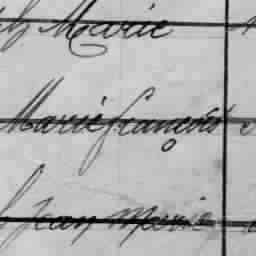 Marie
Marie françois
Jean Marie